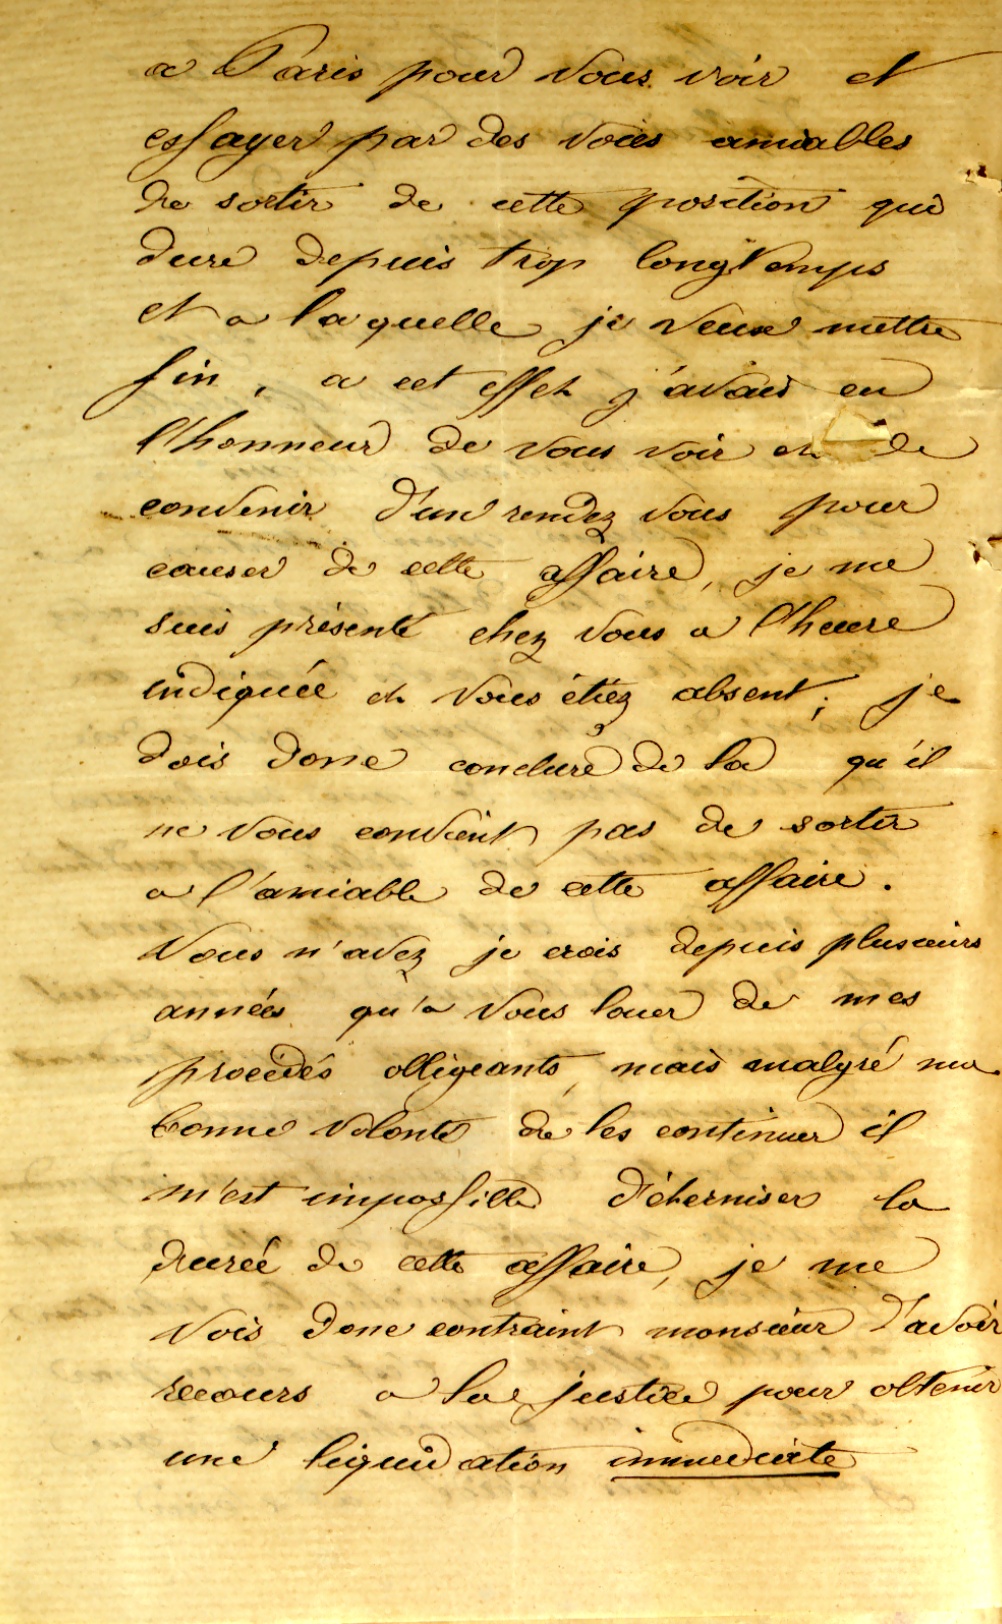 a Paris pour vous voir et
essayer par des voies amiables
de sortir de cette position qui
dure depuis trop longtemps
et a laquelle je veux mettre
fin, a cet effet j'avais eu
l'honneur de vous voir et de
convenir d'un rendez vous pour
causer de cette affaire, je me
suis présenté chez vous a l'heure
indiquée et vous étiez absent; je
dois donc conclure de la qu'il
ne vous convient pas de sortir
a l'amiable de cette affaire.
Vous n'avez je crois depuis plusieurs
années qu'a vous louer de mes
procédés obligeants, mais malgré ma
bonne volonté de les continuer il
m'est impossible d'éterniser la
durée de cette affaire, je me
vois donc contraint monsieur d'avoir
recours a la justice pour obtenir
une liquidation immediate